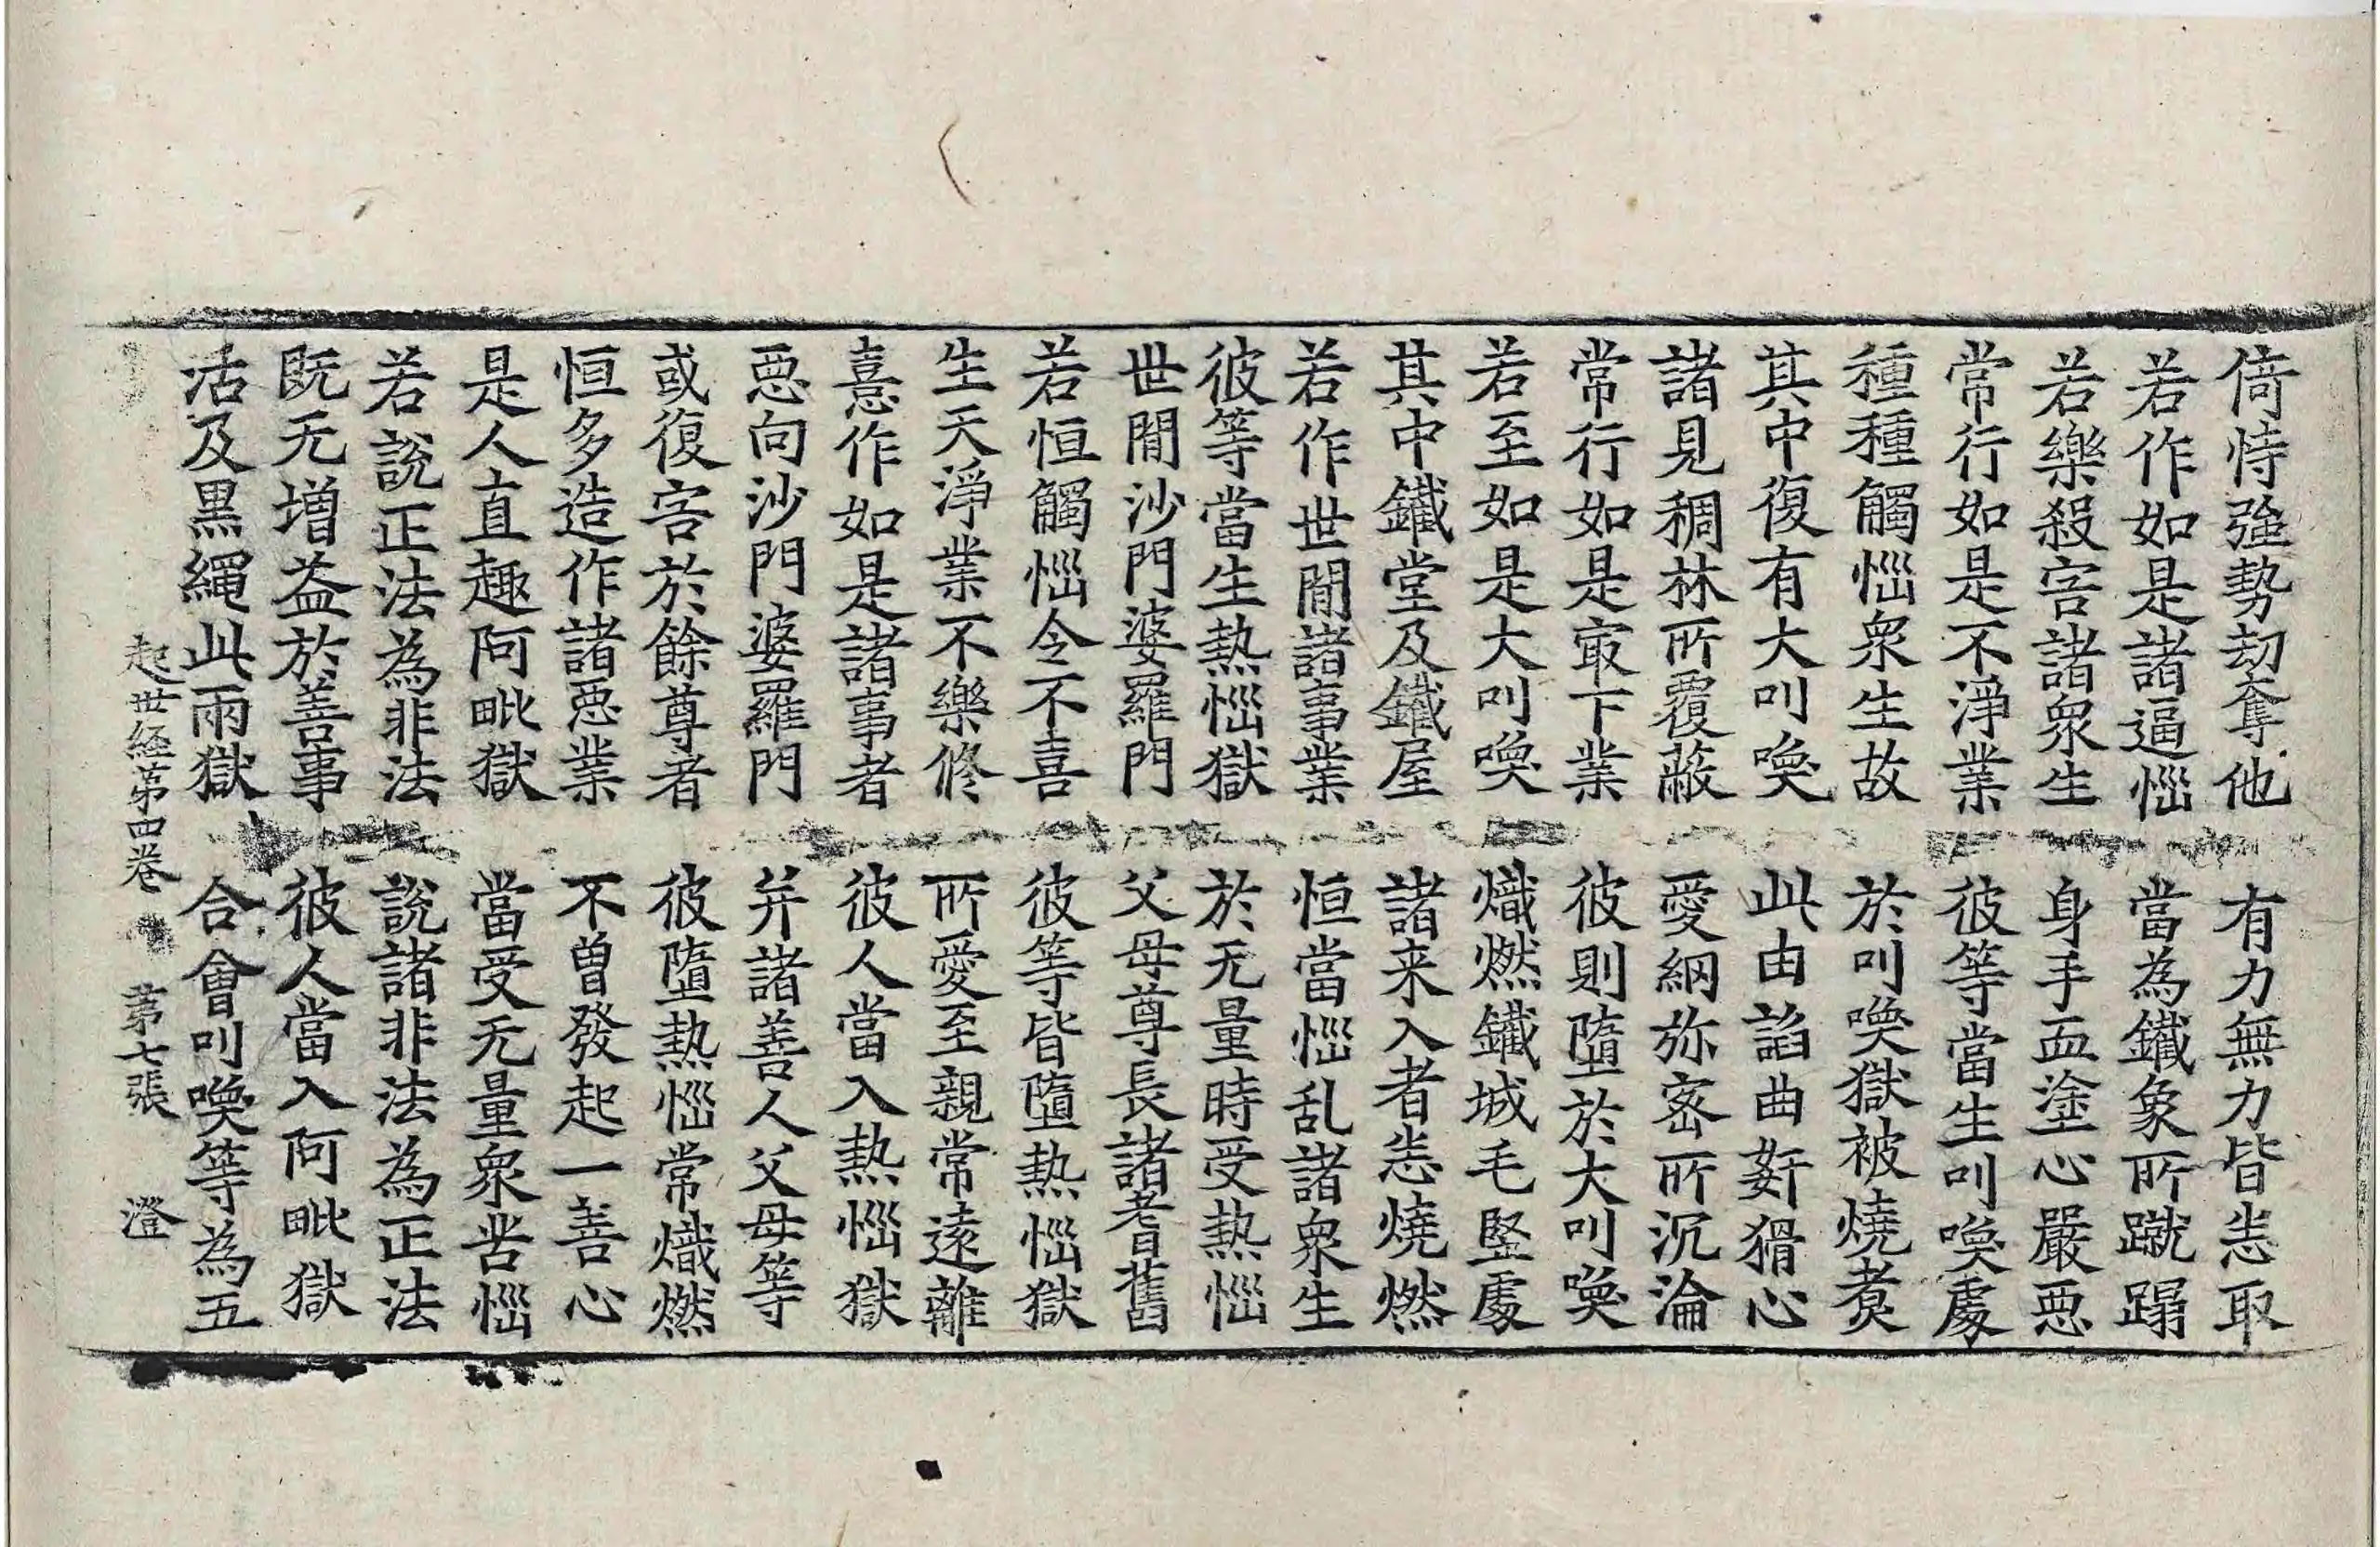 倚恃強勢劫奪他　有力無力皆恙取
若作如是諸逼惱　當為鐵象所蹴蹋
若樂殺害諸眾生　身手血塗心嚴惡
常行如是不淨業　彼等當生叫喚處
種種觸惱眾生故　於叫喚獄被燒煑
其中復有大叫喚　此由諂曲姧猾心
諸見稠林所覆蔽　愛網弥密所沉淪
常行如是㝡下業　彼則墮於大叫喚
若至如是大叫喚　熾燃鐵城毛竪處
其中鐵堂及鐵屋　諸来入者恙燒燃
若作世間諸事業　恒當惱乱諸眾生
彼等當生熱惱獄　於无量時受熱惱
世間沙門婆羅門　父母尊長諸耆舊
若恒觸惱令不喜　彼等皆墮熱惱獄
生天淨業不樂修　所愛至親常遠離
憙作如是諸事者　彼人當入熱惱獄
惡向沙門婆羅門　并諸善人父母等
或復害於餘尊者　彼墮熱惱常熾燃
恒多造作諸惡業　不曾發起一善心
是人直趣阿毗獄　當受无量眾苦惱
若說正法為非法　說諸非法為正法
既无增益於善事　彼人當入阿毗獄
活及黑繩此兩獄　合會叫喚等為五
起世経第四卷　第七張　澄